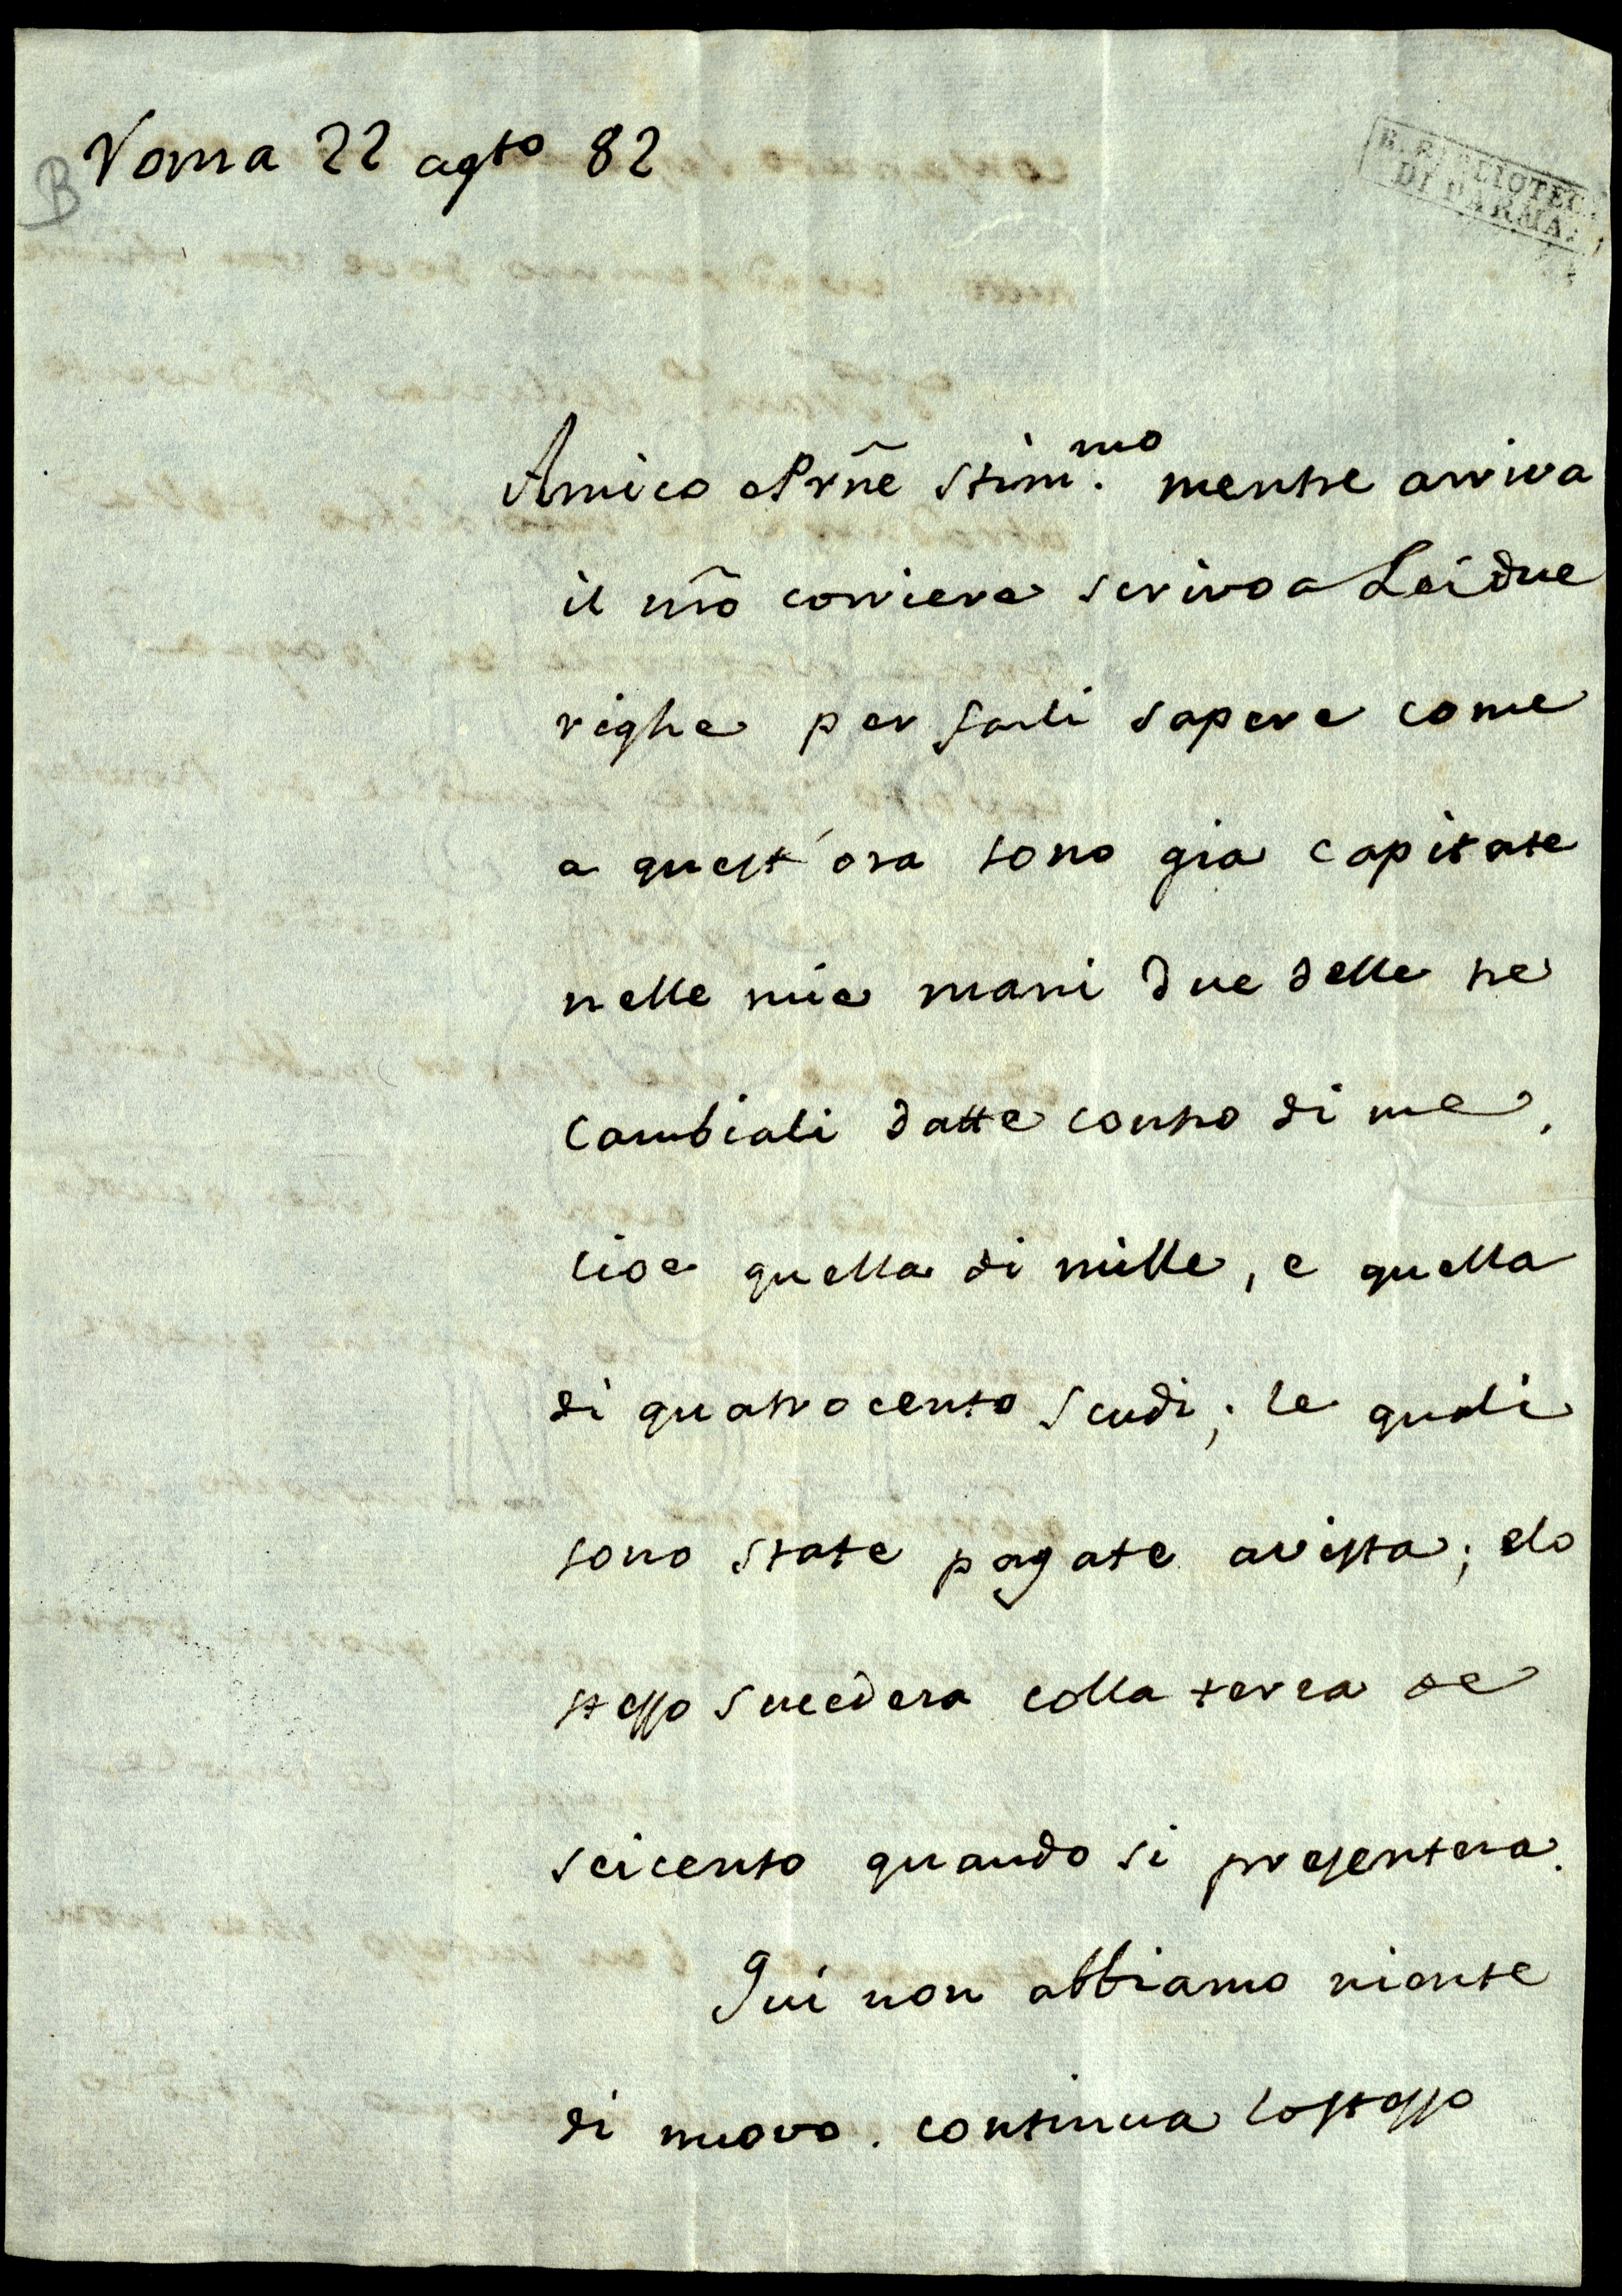 Roma 22 agto 82
B
R. BIBLIOTECA
DI PARMA
Amico e Prñe Stimmo. mentre arriva
il nr̃o corriere scrivo a Lei due
righe per farli sapere come
a quest'ora sono gia capitate
nelle mie mani due delle tre
Cambiali datte contro di me,
cioe quella di mille, e quella
di quatrocento scudi; le quali
sono state pagate avista; elo
stesso succedera colla terza de
seicento quando si presentera.
Qui non abbiamo niente
di nuovo. continua lostesso